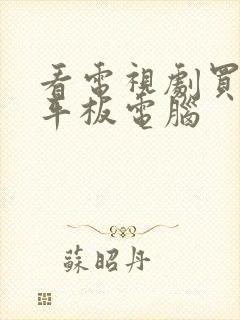 看電視劇買
平板電腦
蘇昭丹